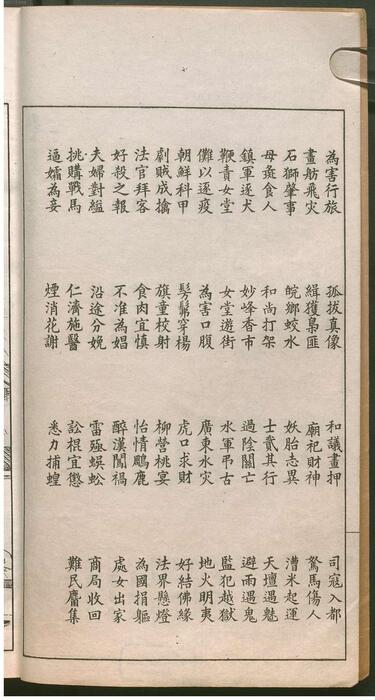 為害行旅 孤拔真像 和議畫押 司寇入都
畫舫飛災 緝獲梟匪 廟祀財神 駑馬傷人
石獅肇事 皖鄉蛟水 妖胎志異 漕米起運
母彘食人 和尚打架 士貳其行 天壇遇魅
鎮軍逐犬 妙峰香市 過陰關亡 避雨遇鬼
鞭責女堂 女堂遊街 水軍弔古 監犯越獄
儺以逐疫 為害口腹 廣東水災 地火明夷
朝鮮科甲 髣髴穿楊 虎口求財 好結佛緣
劇賊成擒 旗童校射 柳營桃宴 法界懸燈
法官拜客 食肉宜慎 怡情鵰鹿 為國捐軀
好殺之報 不准為娼 醉漢闖禍 處女出家
夫婦對縊 沿途分娩 雷殛蜈蚣 商局收回
挑購戰馬 仁濟施醫 訟棍宜懲 難民麕集
逼孀為妾 煙消花謝 悉力捕蝗